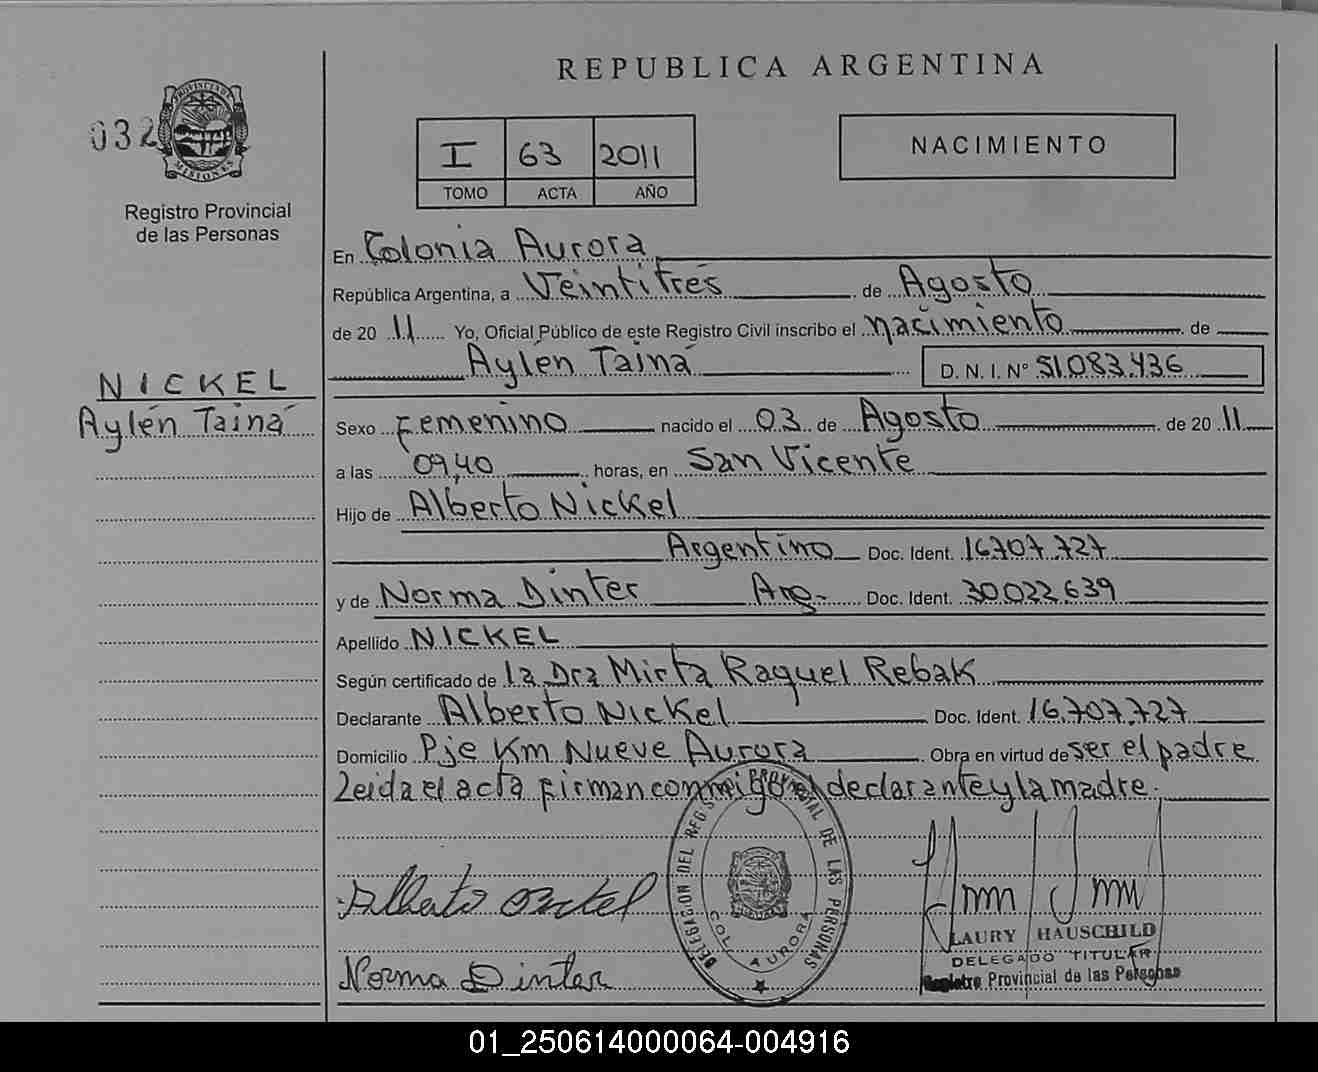 REPUBLICA ARGENTINA
032
PROVINCIA DE MISIONES
Registro Provincial
de las Personas
I 63 2011
TOMO ACTA AÑO
NACIMIENTO
NICKEL
Aylén Tainá
En Colonia Aurora
República Argentina, a Veintitrés de Agosto
de 20 11 Yo, Oficial Público de este Registro Civil inscribo el nacimiento de
Aylén Tainá D. N. I. N° 51.083.436
Sexo Femenino nacido el 03 de Agosto de 20 11
a las 09,40 horas, en San Vicente
Hijo de Alberto Nickel
Argentino Doc. Ident. 16.707.727
y de Norma Dinter Arg. Doc. Ident. 30.022.639
Apellido NICKEL
Según certificado de la Dra Mirta Raquel Rebak
Declarante Alberto Nickel Doc. Ident. 16.707.727
Domicilio Pje Km Nueve Aurora Obra en virtud de ser el padre
Leida el acta firman conmigo el declarante y la madre.
DELEGACION DEL REGISTRO PROVINCIAL DE LAS PERSONAS
COL. AURORA
Alberto Nickel
Norma Dinter
LAURY HAUSCHILD
DELEGADO TITULAR
Registro Provincial de las Personas
01_250614000064-004916